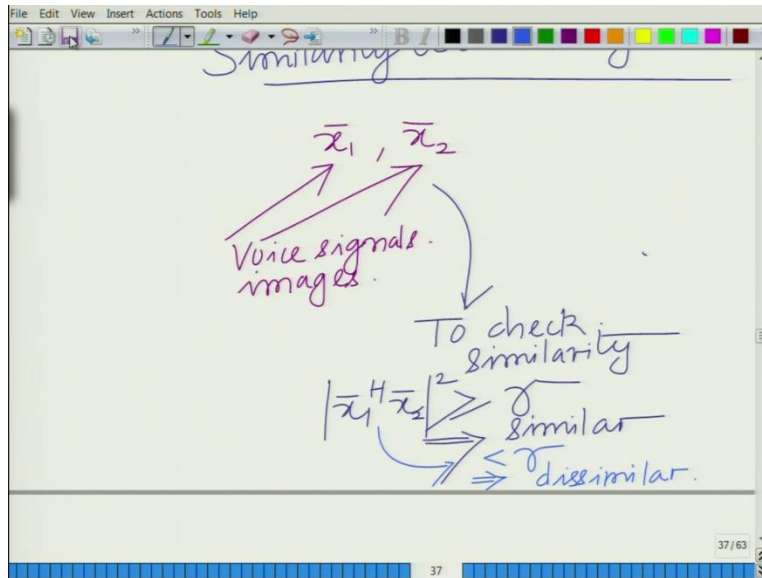 File Edit View Insert Actions Tools Help
B I
Similarity
x̄₁ , x̄₂
Voice signals.
images.
To check
similarity
|x̄₁ᴴ x̄₂|² ≥ γ
⇒ similar
< γ
⇒ dissimilar.
37/63
37